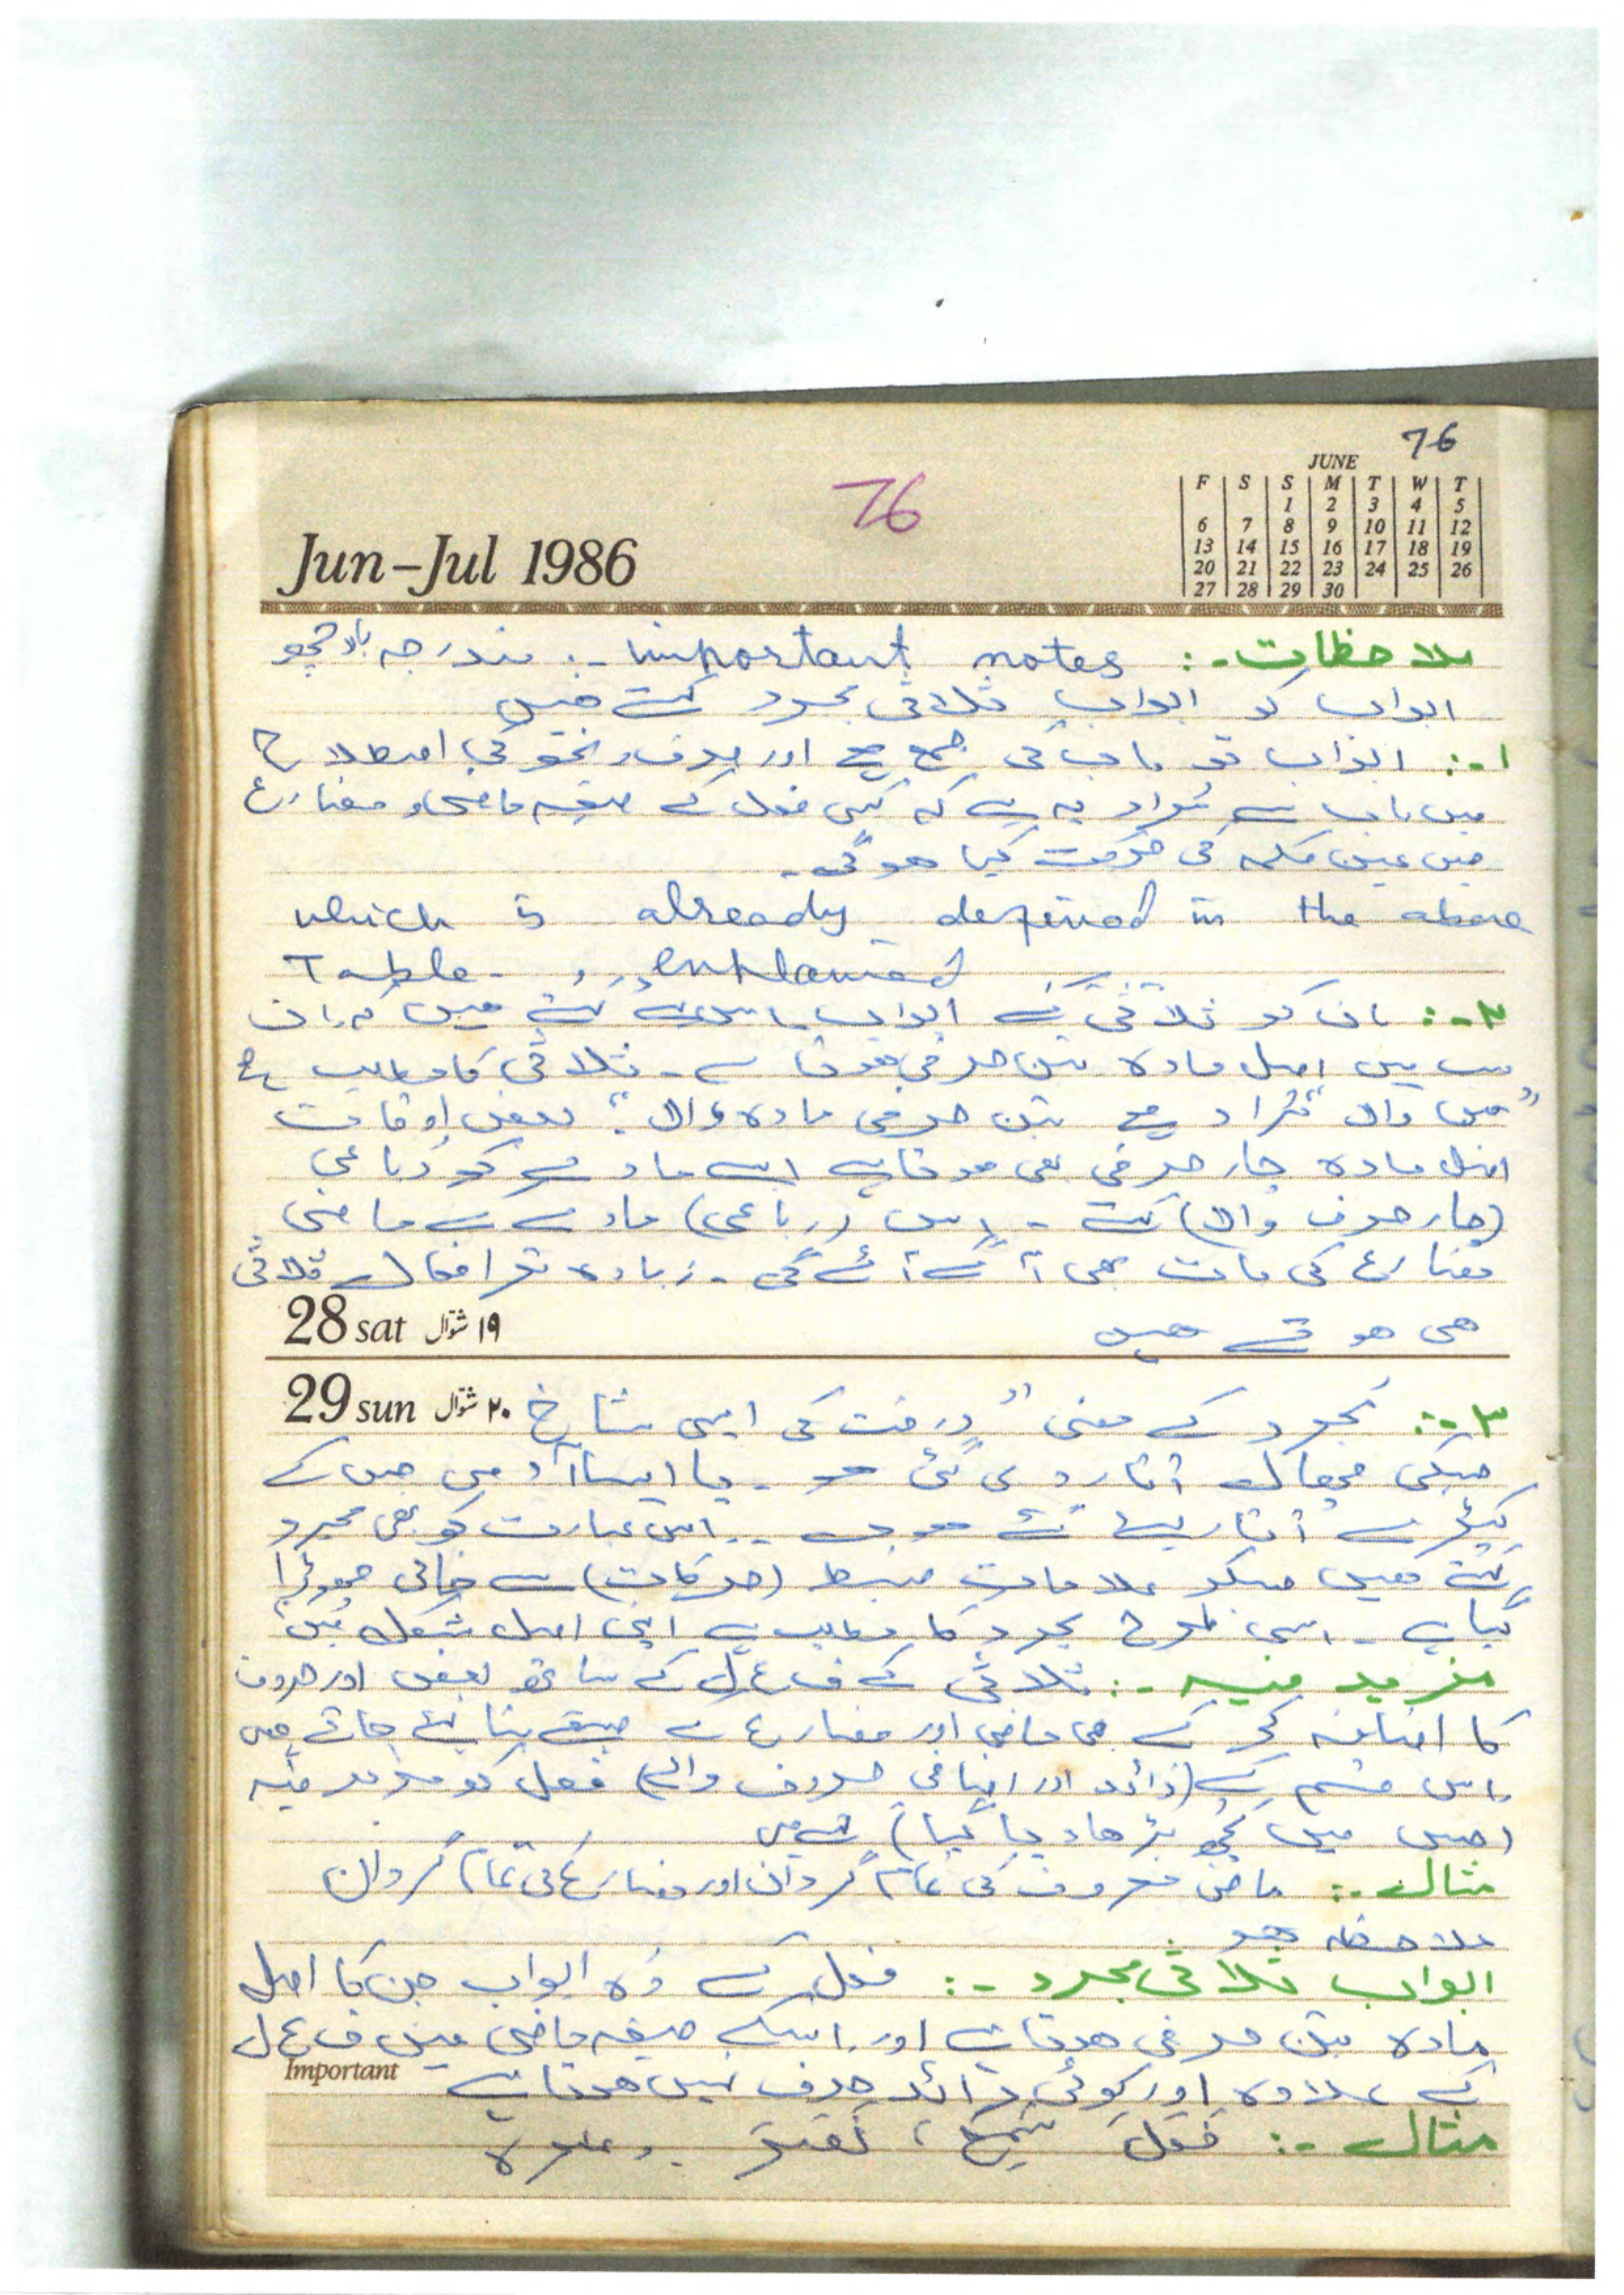 76
76
JUNE
F S S M T W T
1 2 3 4 5
6 7 8 9 10 11 12
13 14 15 16 17 18 19
20 21 22 23 24 25 26
27 28 29 30
Jun-Jul 1986
ملاحظات :- important notes :- مندرجہ بالا چھ
ابواب کو ابواب ثلاثی مجرد کہتے ہیں
۱ :- ابواب تو باب کی جمع ہے اور صرف و نحو کی اصطلاح
میں باب سے مراد یہ ہے کہ کسی فعل کے صیغہ ماضی و مضارع
میں عین کلمہ کی حرکت کیا ہوگی۔
which is already defined in the above
Table. ,, explained
۲ :- ان کو ثلاثی کے ابواب اس لئے کہتے ہیں کہ ان
سب میں اصل مادہ تین حرفی ہوتا ہے ۔ ثلاثی کا مطلب ہے
"تین والا" مراد ہے تین حرفی مادہ والا ؛ بعض اوقات
اصل مادہ چار حرفی بھی ہوتا ہے ایسے مادے کو رباعی
(چار حرف والا) کہتے ۔ اس (رباعی) مادے سے ماضی
مضارع کی بات بھی آگے آئے گی ۔ زیادہ تر افعال ثلاثی
28 sat ۱۹ شوّال
ہی ہوتے ہیں
29 sun ۲۰ شوّال
۳ :- مجرد کے معنی "درخت کی ایسی شاخ
جسکی چھال اتار دی گئی ہو ۔ یا ایسا آدمی جس کے
کپڑے اتار لیے گئے ہوں ۔ اس عبارت کو بھی مجرد
کہتے ہیں جسکو علامات ضبط (حرکات) سے خالی چھوڑا
گیا ہے ۔ اسی طرح مجرد کا مطلب ہے اپنی اصل شکل میں
مزید فیہ :- ثلاثی کے ف ع ل کے ساتھ بعض اور حروف
کا اضافہ کر کے بھی ماضی اور مضارع کے صیغے بنائے جاتے ہیں
اس قسم کے (زائد اور اضافی حروف والے) فعل کو مزید فیہ
(جس میں کچھ بڑھا دیا گیا) کہتے ہیں
مثال :- ماضی معروف کی تمام گردان اور مضارع کی تمام گردان
ملاحظہ ہو
ابواب ثلاثی مجرد :- فعل کے وہ ابواب جن کا اصل
مادہ تین حرفی ہوتا ہے اور اسکے صیغہ ماضی میں ف ع ل
Important
کے علاوہ اور کوئی زائد حرف نہیں ہوتا ہے
مثال :- فَعَلَ سَمِعَ ، وغیرہ